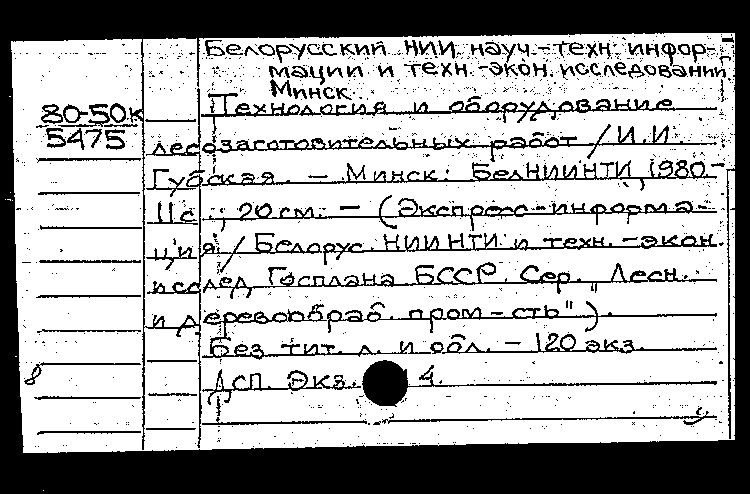 Белорусский НИИ науч.-техн. инфор-
мации и техн.-экон. исследований.
Минск.
80-50к
5475
Технология и оборудование
лесозаготовительных работ / И.И.
Губская. - Минск: БелНИИНТИ, 1980-
11с.; 20 см. - (Экспресс-информа-
ция / Белорус. НИИНТИ и техн.-экон.
исслед. Госплана БССР. Сер. "Лесн.
и деревообраб. пром-сть").
Без тит. л. и обл. - 120 экз.
8
ДСП. Экз. 4.